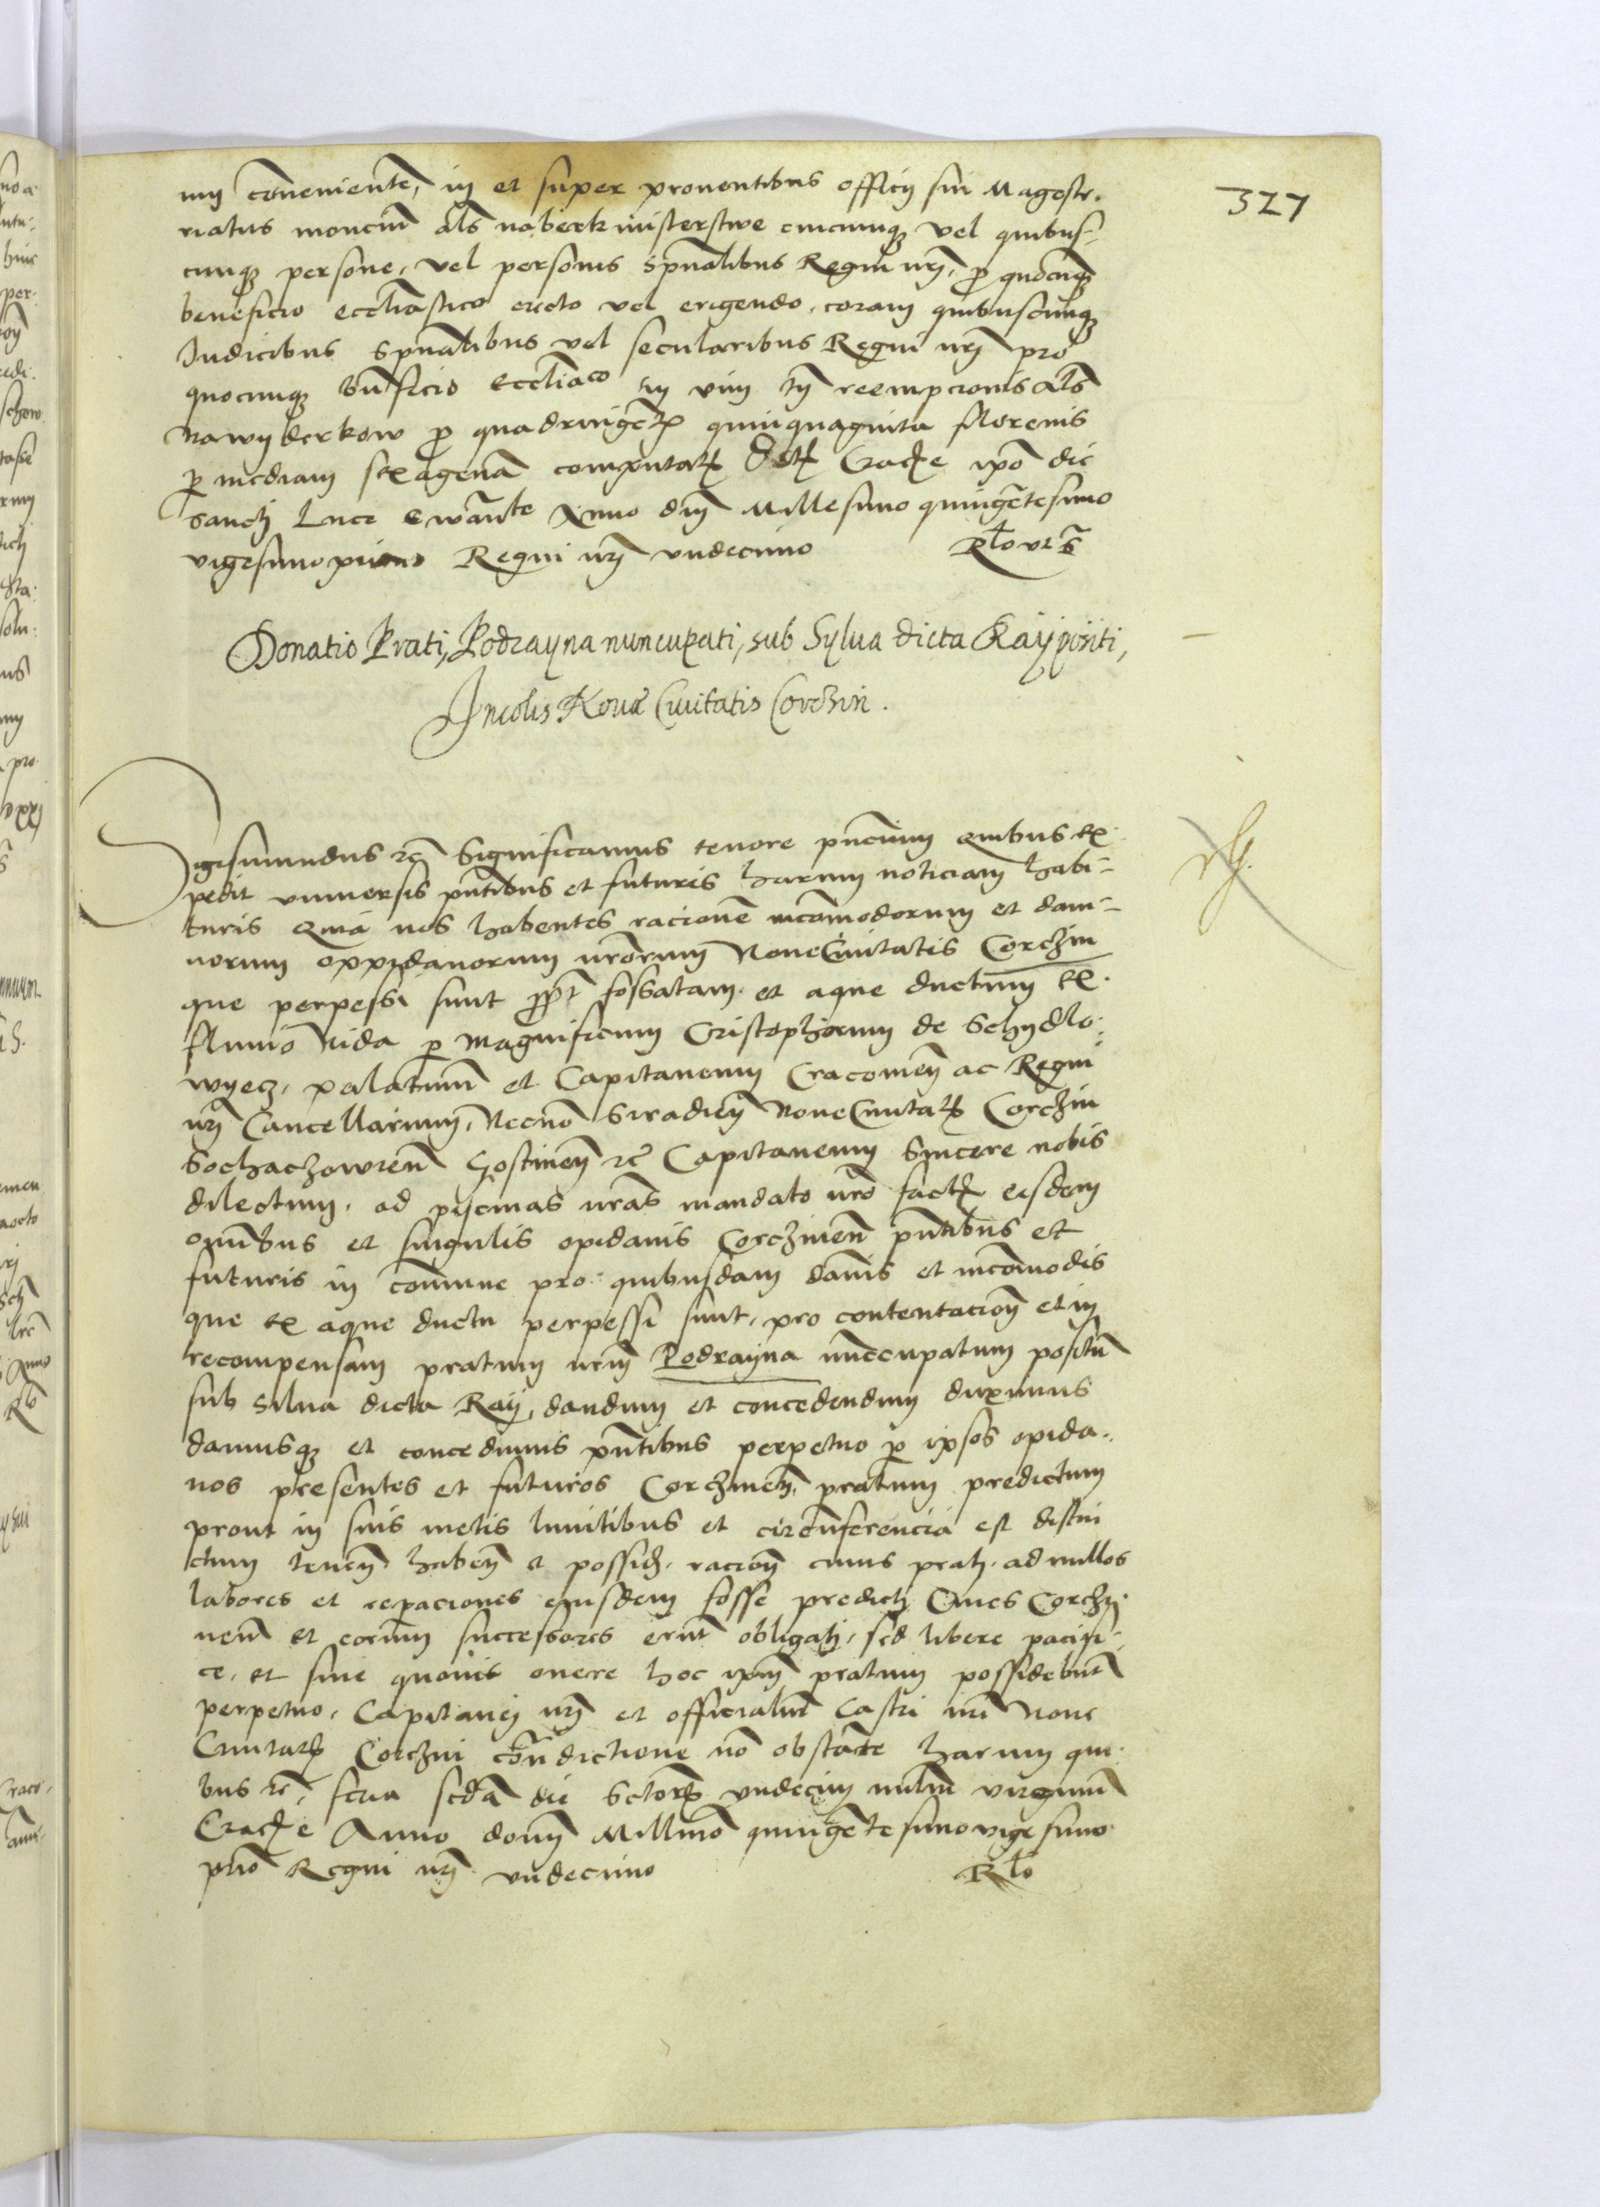 327
nij conuenientē, in et super prouentibus officij sui Magestr.
riatus monciū als naberkmisterstwe cuicunq3 vel quibus=
cunq3 persone, vel personis spūalibus Regni nrj, p quocūq3
beneficio eccliastico erecto vel erigendo, coram quibuscunq3
Iudicibus spūalibus vel secularibus Regni nrj pro
quocunq3 bnficio Eccliaco in vim tn reempcionis als
nawyderkow p quadringētp quinquaginta florenis
p mediam sexagenā computatp Dat Crac̄e ipō die
Sancti Luce Ewāte Anno dnj Millesimo quingētesimo
vigesimoprimo Regni nrj vndecimo Rlo vt s
Donatio Prati, Podrayna nuncupati, sub Sylua dicta Raij positi,
Incolis Nouæ Ciuitatis Corchin.
Sigismundus rc Significamus tenore pnciūm Quibus ex=
pedit vniuersis pntibus et futuris harum noticiam habi=
turis Quia nos habentes racionē incomodorum et dam=
norum oppidanorum nrorum NoueCiuitatis Corchin
que perpessi sunt ppt fossatam et aque ductum ex
fluuio Nida p Magnificum Cristophorum de Schydlo=
wyecz, palatinū et Capitaneum Cracouien ac Regni
nrj Cancellarium, Necnō Siradien NoueCiuitatp Corchin
Sochaczowien Gostinen rc Capitaneum Sincere nobis
dilectum, ad piscinas nras mandato nro fact eisdem
omībus et singulis opidanis Corchinen pntibus et
futuris in comune pro quibusdam damis et incomodis
que ex aque ductu perpessi sunt, pro contentacion et in
recompensam pratum nrm Podrayna nūccupatum positū
sub silua dicta Raij, dandum et concedendum duximus
damusq3 et concedimus pntibus perpetuo p ipsos opida=
nos presentes et futuros Corchinen, pratum predictum
prout in suis metis limitibus et circūferencia est distin
ctum tenen haben et possid. racion cuius prati ad nullos
labores et repaciones eiusdem fosse predicti Ciues Corchi
nen et eorum successores erūt obligati, sed libere pacifi=
ce, et sine quouis onere hoc ipm pratum possidebūt
perpetuo, Capitanei nrj et officialiū Castri nri Noue
Ciuitatp Corchin cōtradictione nō obstāte harum qui
bus rc, feria scdā die Sctorp vndecim miliū virginū
Crac̄e Anno domi Millmo quingētesimo vigesimo
pmo Regni nrj vndecimo Rlo